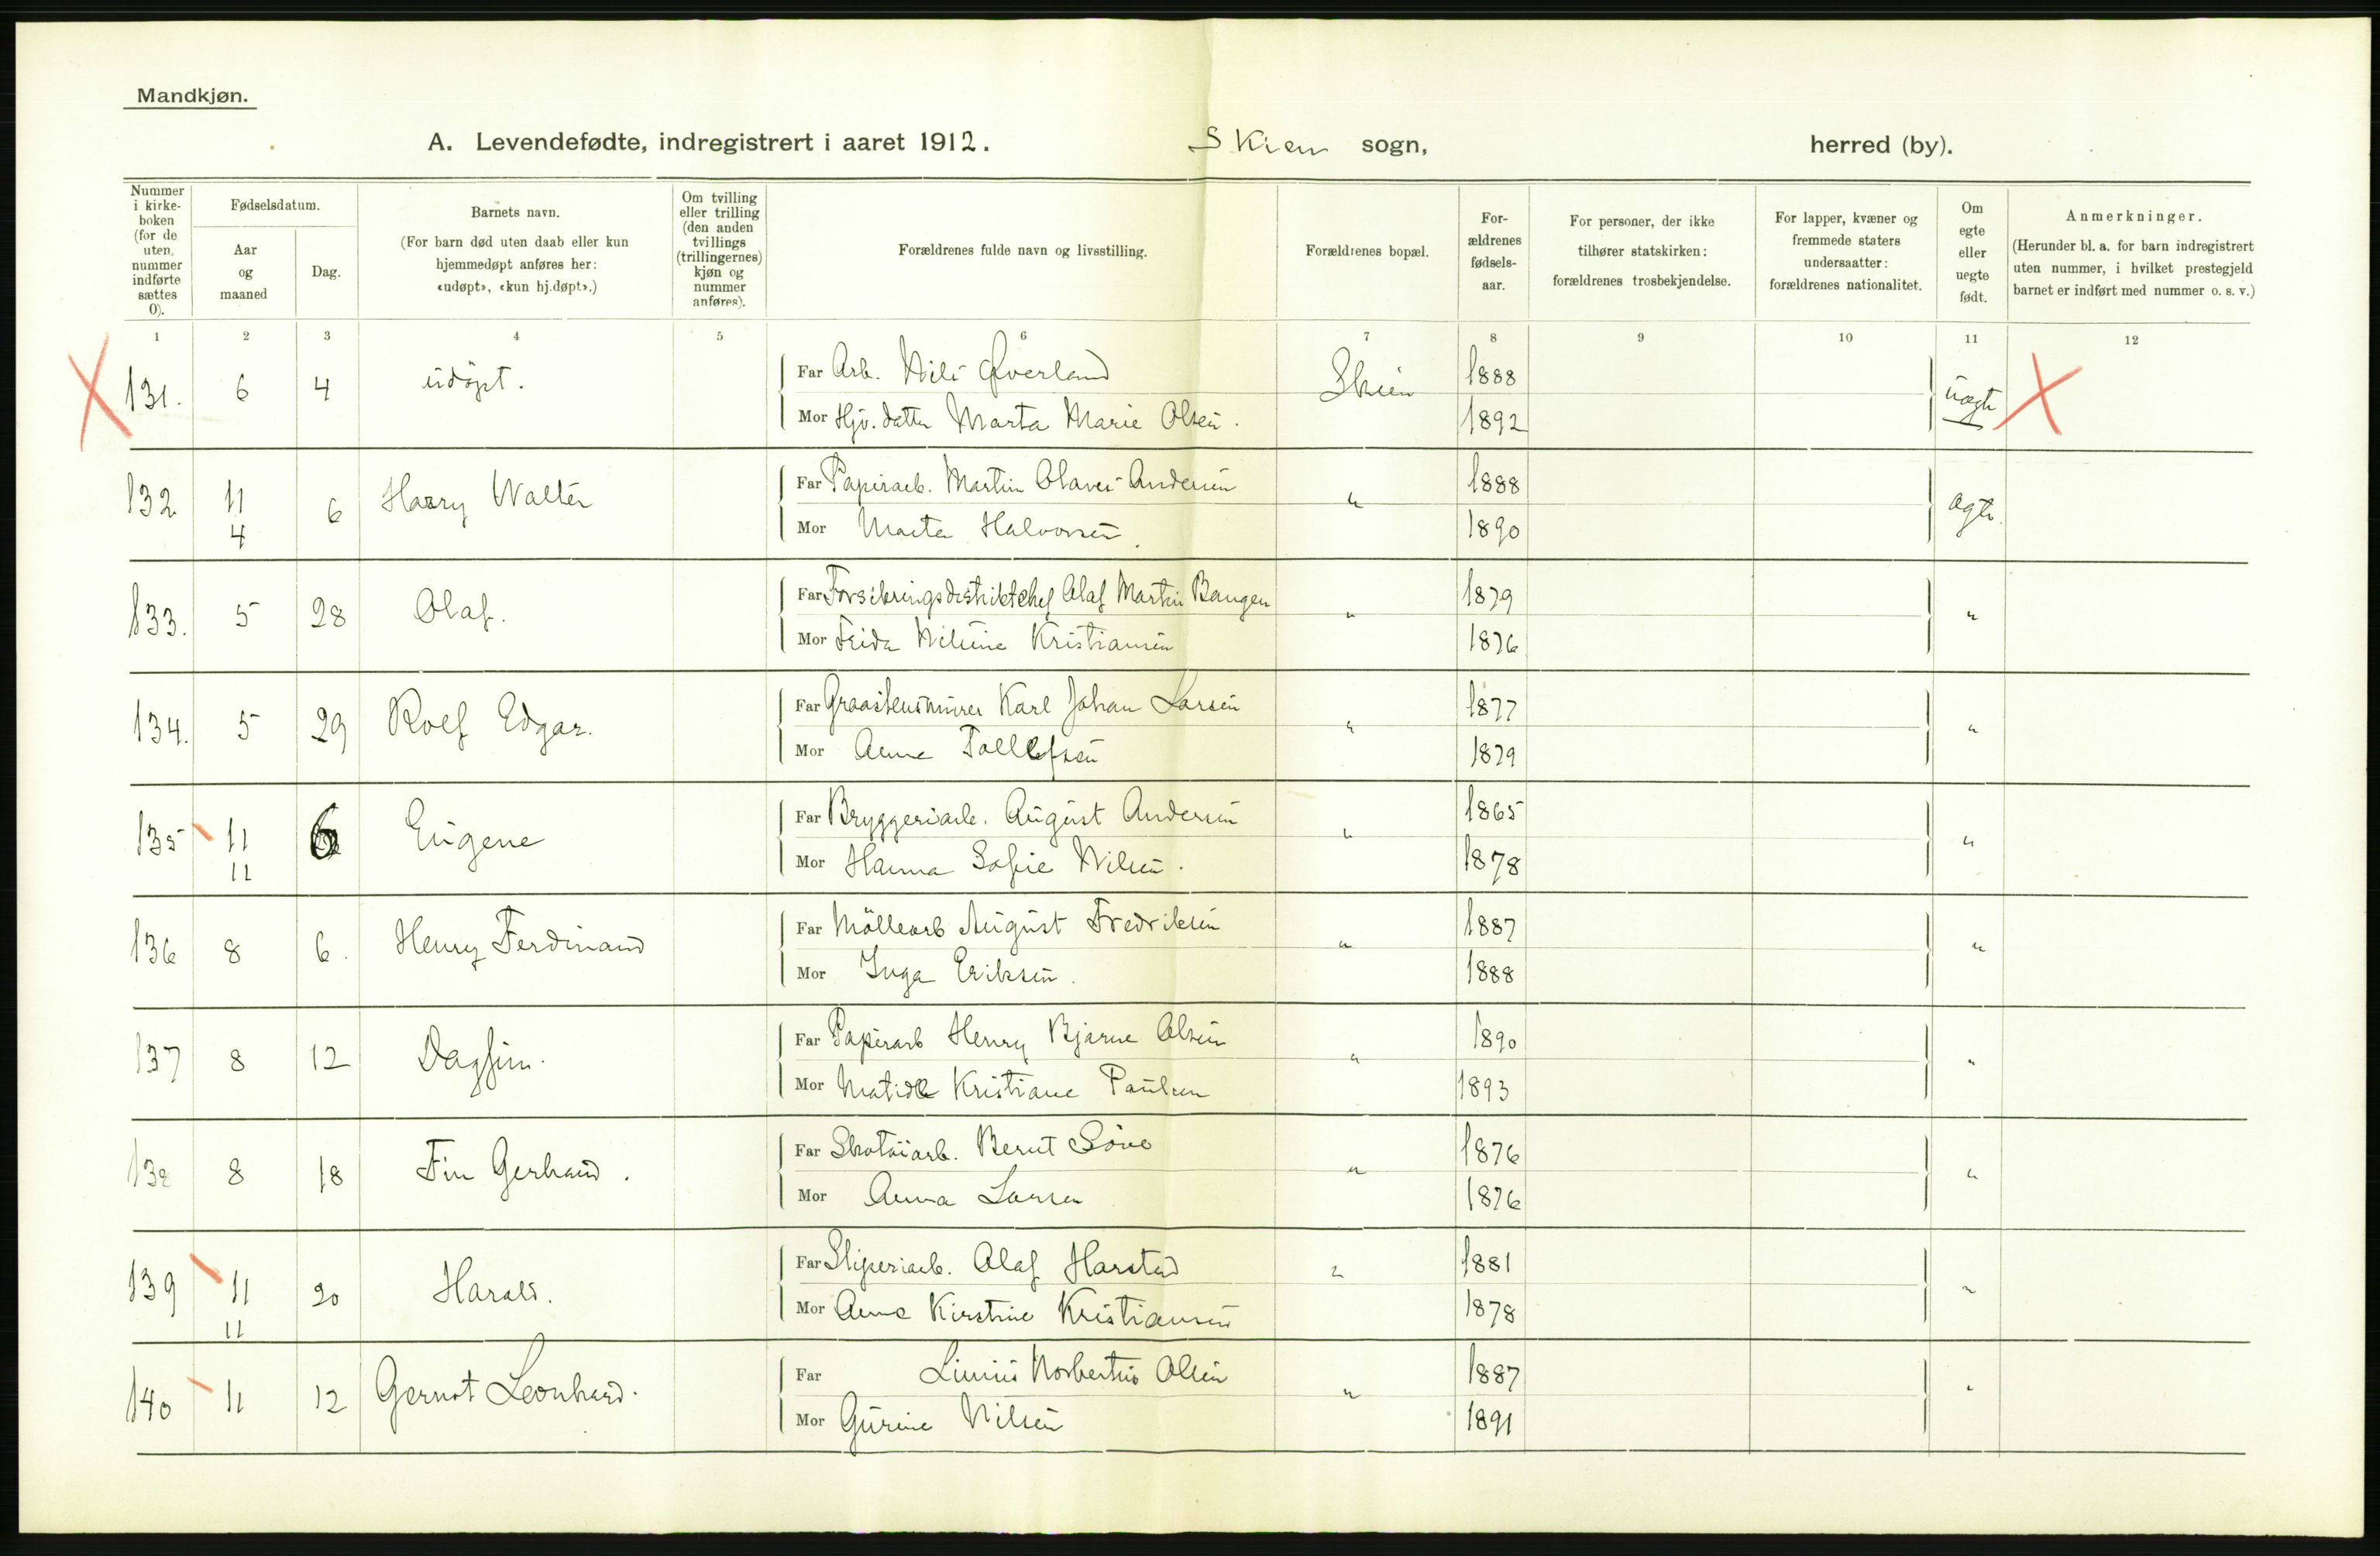 Mandkjøn.
A. Levendefødte, indregistrert i aaret 1912. Skien sogn, herred (by).
Nummer i kirkeboken (for de uten, nummer indførte sættes 0).
Fødselsdatum.
Aar og maaned
Dag.
Barnets navn.
(For barn død uten daab eller kun hjemmedøpt anføres her: «udøpt», «kun hj.døpt».)
Om tvilling eller trilling (den anden tvillings (trillingernes) kjøn og nummer anføres).
Forældrenes fulde navn og livsstilling.
Forældrenes bopæl.
For-ældrenes fødsels-aar.
For personer, der ikke tilhører statskirken: forældrenes trosbekjendelse.
For lapper, kvæner og fremmede staters undersaatter: forældrenes nationalitet.
Om egte eller uegte født.
Anmerkninger.
(Herunder bl. a. for barn indregistrert uten nummer, i hvilket prestegjeld barnet er indført med nummer o. s. v.)
1 2 3 4 5 6 7 8 9 10 11 12
131. 6 4 udøpt. Far Arb. Nils Øverland Skien 1888 uægte
Mor Hjv. datter Marta Marie Olsen. 1892
132 11 4 6 Harry Walter Far Papirarb. Martin Olaves Andersen " 1888 ægte.
Mor Marta Halvorsen. 1890
133. 5 28 Olaf. Far Forsikringsdistriktchef Olaf Martin Baugen " 1879 "
Mor Frida Nilsine Kristiansen 1876
134. 5 29 Rolf Edgar. Far Graastensmurer Karl Johan Larsen " 1877 "
Mor Anna Tollefsen 1879
135 11 11 6 Eugene Far Bryggeriarb. August Andersen " 1865 "
Mor Hanna Sofie Nilsen. 1878
136 8 6. Henry Ferdinand Far Möllearb August Fredriksen " 1887 "
Mor Inga Eriksen. 1888
137 8 12 Dagfin. Far Papirarb Henry Bjarne Olsen " 1890 "
Mor Matide Kristiane Paulsen 1893
138 8 18 Fin Gerhard. Far Skotöiarb. Bernt Söve " 1876 "
Mor Anna Larsen 1876
139 11 11 20 Harald. Far Sliperiarb. Olaf Harstad " 1881 "
Mor Anna Kirstine Kristiansen 1878
140 11 12 Gernot Leonhard. Far Linius Norbertus Olsen " 1887 "
Mor Gurine Nilsen 1891